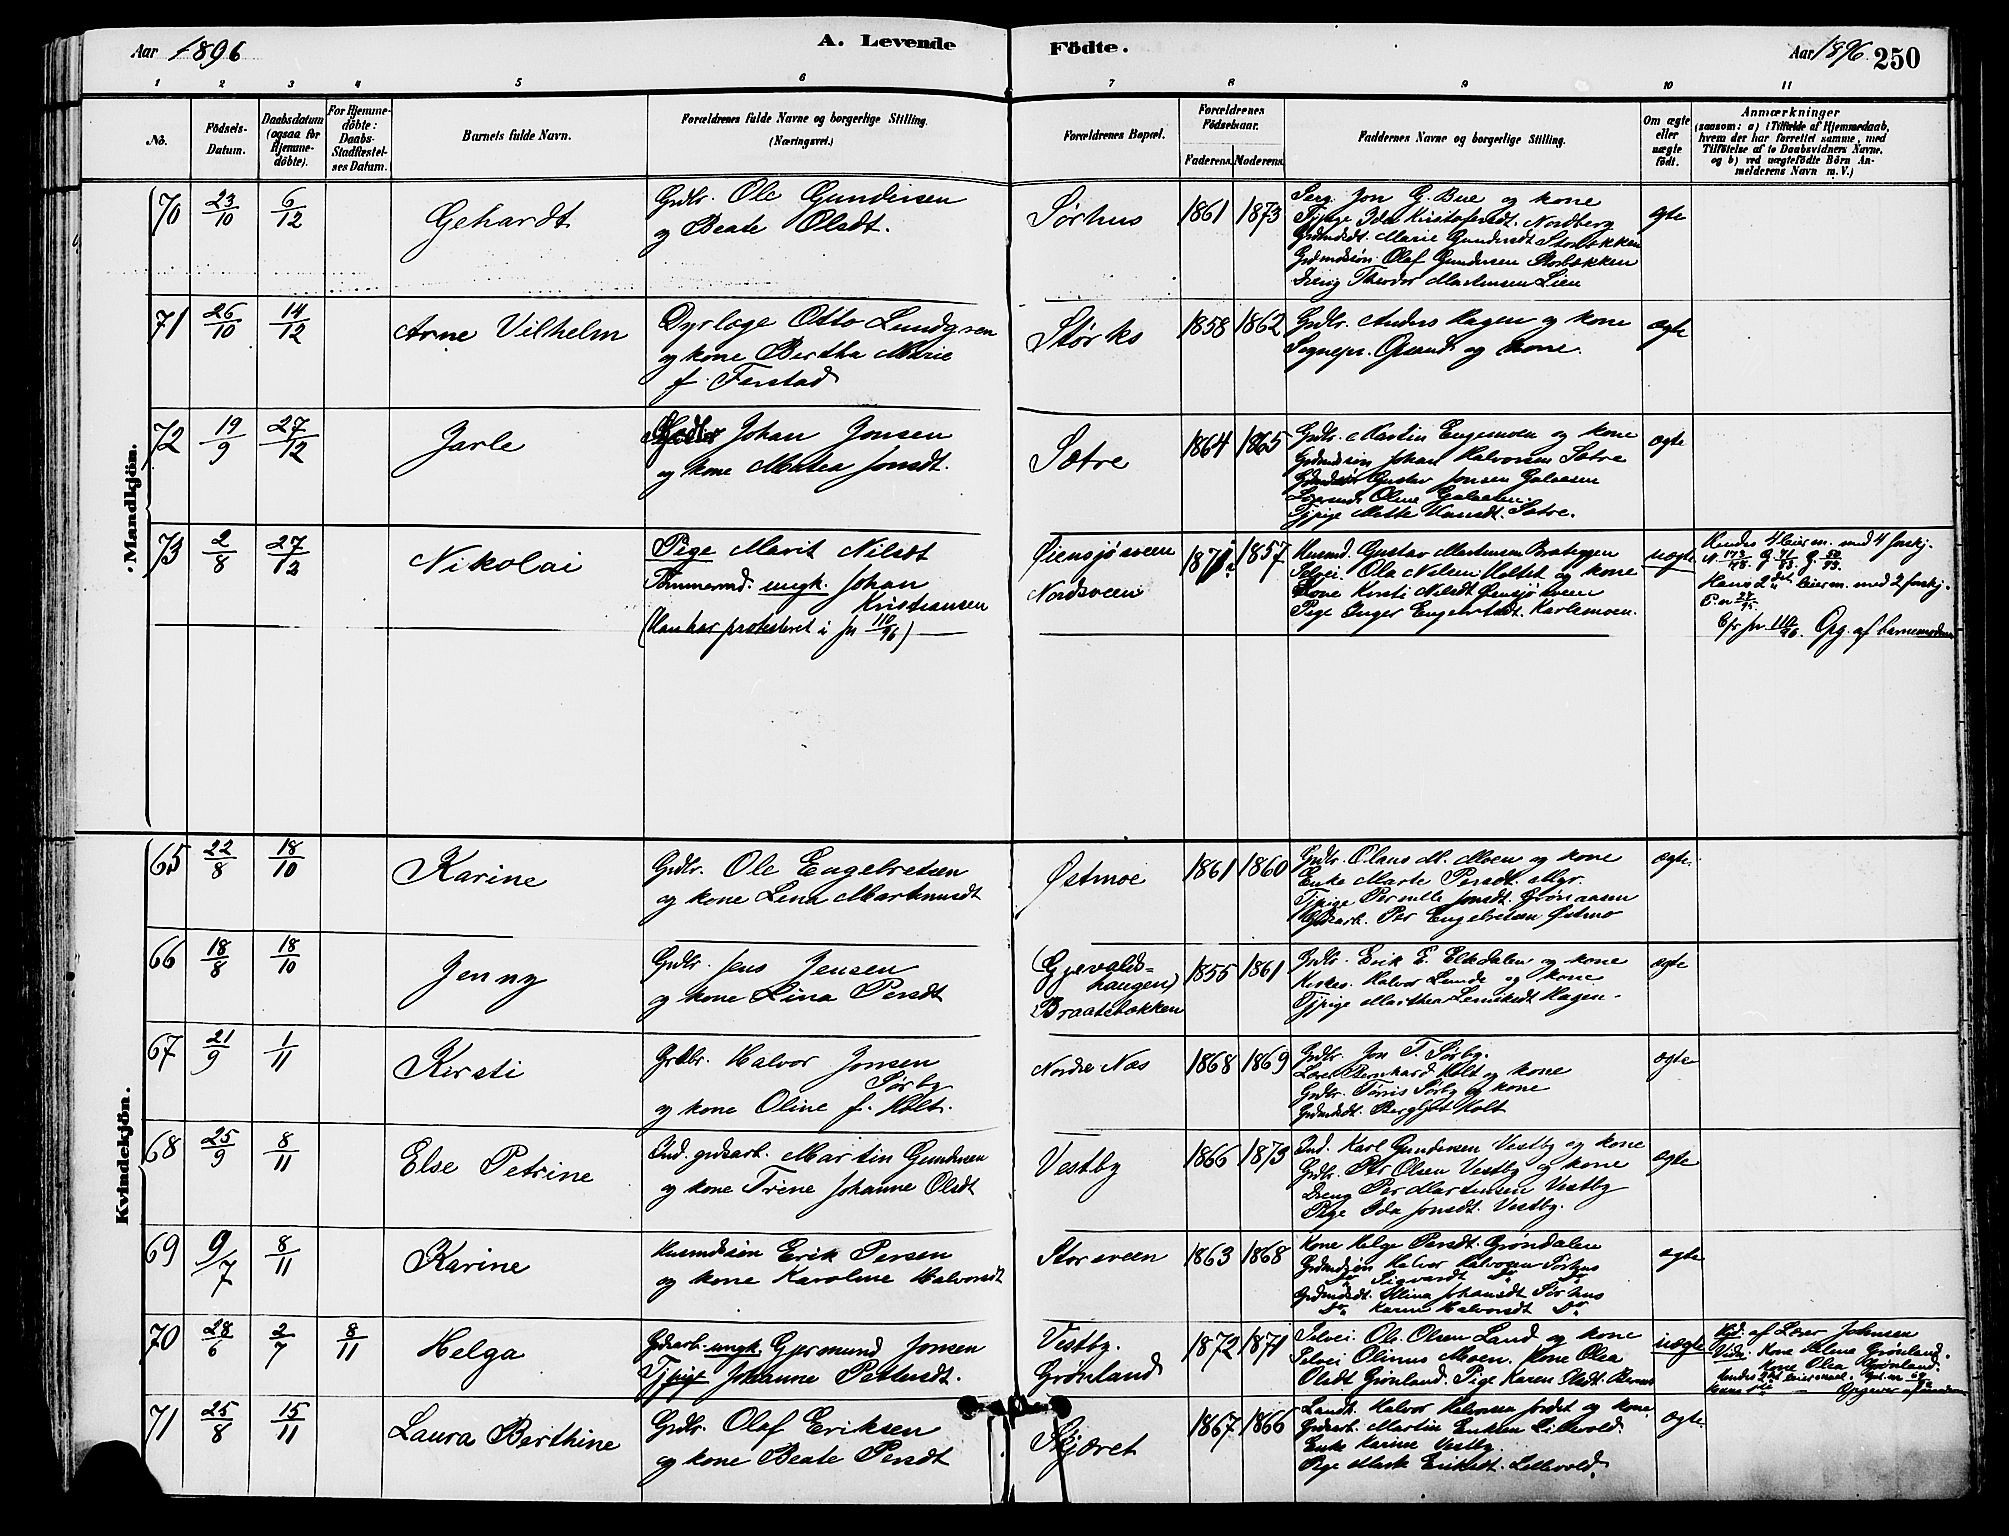 Aar 1896
A. Levende
Födte.
Aar 1896.
250
1 2 3 4 5 6 7 8 9 10 11
No.
Födsels-
Datum.
Daabsdatum
(ogsaa for
Hjemme-
döbte).
For Hjemme-
döbte:
Daabs-
Stadfæstel-
ses Datum.
Barnets fulde Navn.
Forældrenes fulde Navne og borgerlige Stilling.
(Næringsvei.)
Forældrenes Bopæl.
Forældrenes
Födselsaar.
Faderens. Moderens.
Faddernes Navne og borgerlige Stilling.
Om ægte
eller
uægte
født.
Anmærkninger
(saasom: a) i Tilfælde af Hjemmedaab,
hvem der har forrettet samme, med
Tilföielse af to Daabsvidners Navne.
og b) ved uægtefödte Börn An-
melderens Navn m. V.)
Mandkjön.
70 23/10 6/12 Gehardt
Grdbr. Ole Gundersen
og Beate Olsdt.
Sørhus 1861 1873
Serg. Jon G. Bue og kone
Tjpige Ida Kristofersdt. Nordberg
Grdmdsdt. Marie Gundersdt Storbækken
Grdmdssøn Olaf Gundersen Storbækken
Dreng Theodor Mortensen Lien
ægte
71 26/10 14/12 Arne Vilhelm
Dyrlæge Otto Lundgren
og kone Bertha Marie
f. Ferstad
Størks 1858 1862
Grdbr. Anders Hagen og kone
Sognepr. og kone.
ægte
72 19/9 27/12 Jarle
Johan Jonsen
og kone Matea Jonsdt.
Sætre 1864 1865
Grdbr. Martin Engemoen og kone
Grdmdssøn Johan Halvorsen Sætre
Gustav Jonsen Galaasen
Oline Galaasen.
Tjpige Mette Hansdt. Sætre.
ægte
73 2/8 27/12 Nikolai
Pige Marit Nilsdt
Tømmermd. ungk. Johan
Kristiansen
(Han har protesteret i jn 110/96)
Øiensjøsveen
Nordsveen
1857
Husmd. Gustav Mortensen Brateggen
Selvei. Ola Nilsen Holtet og kone
Kone Kirsti Nilsdt Øensjøsveen
Pige Inger Engebretsdt. Karlsmoen.
uægte
Hendes 4 leierm. med 4 forskj.
Hans 2det leierm. med 2 forskj.
Cfr jn. 110/96. Opg. af barnemoderen
Kvindekjön.
65 22/8 18/10 Karine
Grdbr. Ole Engebretsen
og kone Lena Martinusdt
Østmoe 1861 1860
Grdbr. Olaus M. Moen og kone
Enke Marte Persdt. Myr.
Tjpige Pernille Jonsdt. Grønaasen
Grdsarb. Per Engebretsen Østmo
ægte.
66 18/8 18/10 Jenny
Grdbr. Jens Jensen
og kone Lina Persdt
(Gjevalds-
haugen)
Braatebækken
1855 1861
Grdbr. Erik E. Elkdalen og kone
Kirkes. Halvor Lunde og kone
Tjpige Marthea Hagen.
ægte
67 21/9 1/11 Kirsti
Grdbr. Halvor Jonsen
Sørby
og kone Oline f. Holt.
Nordre Nes 1868 1869
Grdbr. Jon T. Sørby.
Lærer Bernhard Holt og kone
Grdbr. Tørris Sørby og kone
Grdmdsdt. Bergljot Holt
ægte
68 25/9 8/11 Else Petrine
Ind. grdsarb. Martin Gundersen
og kone Trine Johanne Olsdt
Vestby 1866 1873
Ind. Karl Gundersen Vestby og kone
Grdbr. Olsen Vestby og kone
Dreng Per Martinsen Vestby
Pige Ida Jonsdt. Vestby.
ægte
69 9/7 8/11 Karine
Husmdssøn Erik Persen
og kone Karoline Halvorsdt
Storsveen 1863 1868
Kone Helge Persdt. Grøndalen
Grdmdssøn Halvor Halvorsen Sørhus
Do Sigvardt Do Do
Grdmdsdt. Elina Johansdt Sørhus
Do. Karen Halvorsdt Do.
ægte
70 28/6 2/7 8/11 Helga
Grdsarb. ungk. Gjermund Jonsen
Tjpige Johanne Pettersdt.
Vestby.
Grønland
1872 1871
Selvei. Ol. Olsen Land og kone
Selvei Olinus Moen. Kone Olea
Olsdt Grønland. Pige Karen Olsdt.
uægte
Hjd. af Lærer Johnsen
Vidn. Kone Helene Grønland.
Kone Olea Grønland.
71 25/8 15/11 Laura Berthine
Grdbr. Olaf Eriksen
og kone Beate Persdt
Skjæret 1867 1866
Landh. Halvor Halvorsen Jordet og kone
Grdsarb. Martin Eriksen Lillevold.
Enke Karine Vestby.
Pige Marte Eriksdt. Lillevold.
ægte.